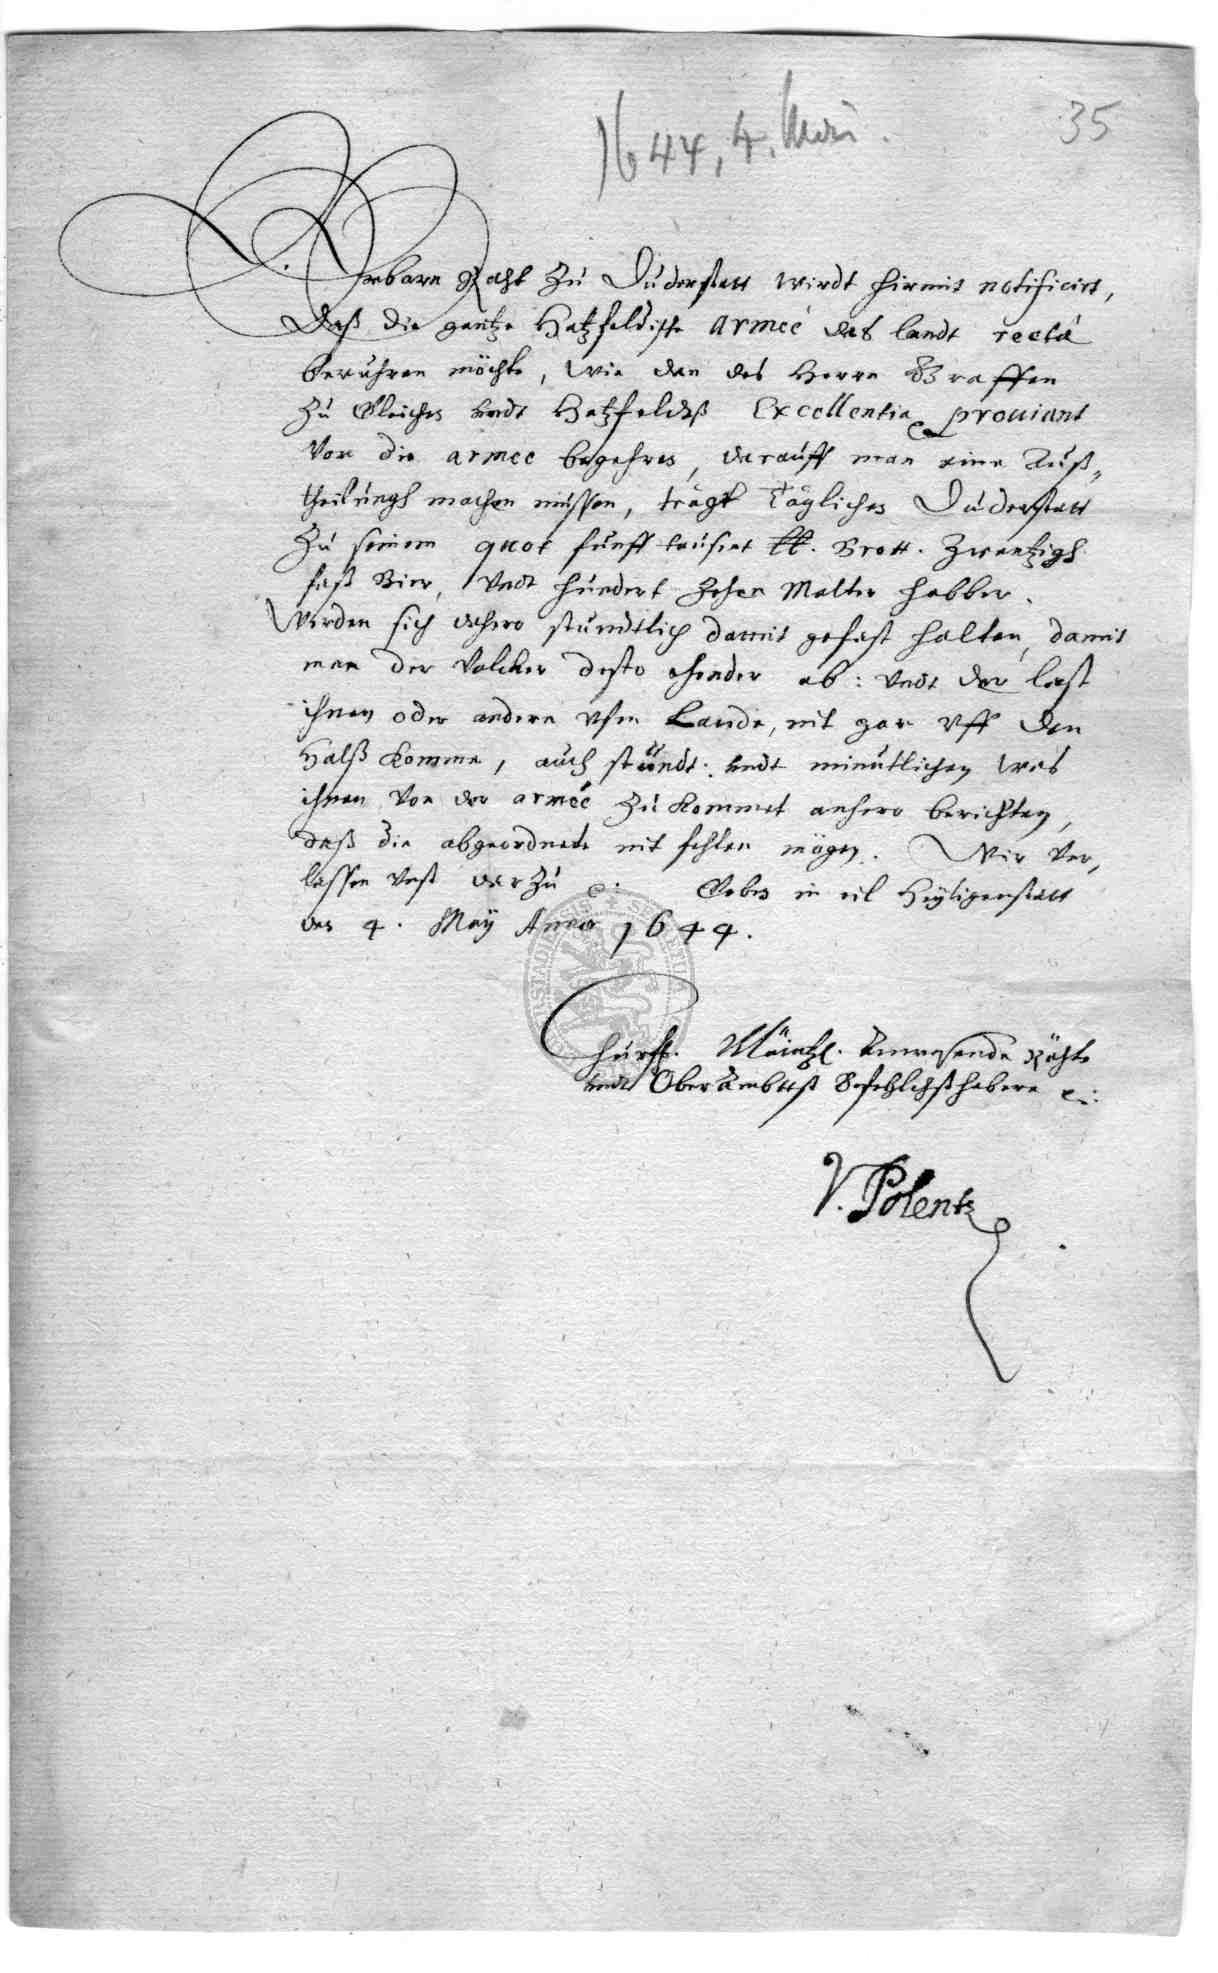 1644, 4. Mai.
35
E. Erbarn Raht zu Duderstatt wirdt hiermit notificirt,
daß die gantze Hatzfeldische armeé das landt rectá
beruhren möchte, wie dan des Herrn Graffen
zu Gleichen undt Hatzfeldtß Excellentia prouiant
vor die armee begehren, darauff man eine Auß-
theilungh machen müssen, trägt täglichen Duderstatt
zu seinem quot funff tausent tt. Brott. Zwantzigh
faß Bier, Undt hundert zehen Malter habber.
Werden sich dahero stundtlich damit gefast halten, damit
man der Volcker desto ehender ab: Undt der last
ihnen oder andern ufm Lande, nit gar uff den
Halß komme, auch stundt: undt minutlichen was
ihnen von der armeé zukommet anhero berichten,
daß die abgeordnete nit fehlen mögen. Wir ver-
lassen unß darzu Geben in eil Heyligenstatt
den 4. Maÿ Anno 1644.
Churf. Maintzl. Anwesende Rähte
undt OberAmbttß Befehlchßhabere
V. Polentz